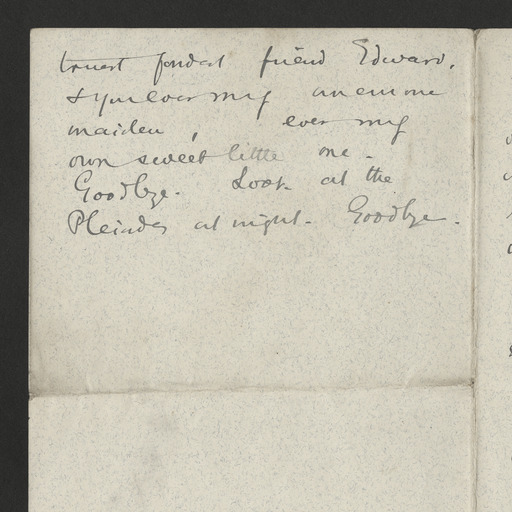 truest fondest friend Edward.
& you ever my anemone
maiden, ever my
own sweet little one.
Goodbye. Look at the
Pleiades at night. Goodbye.